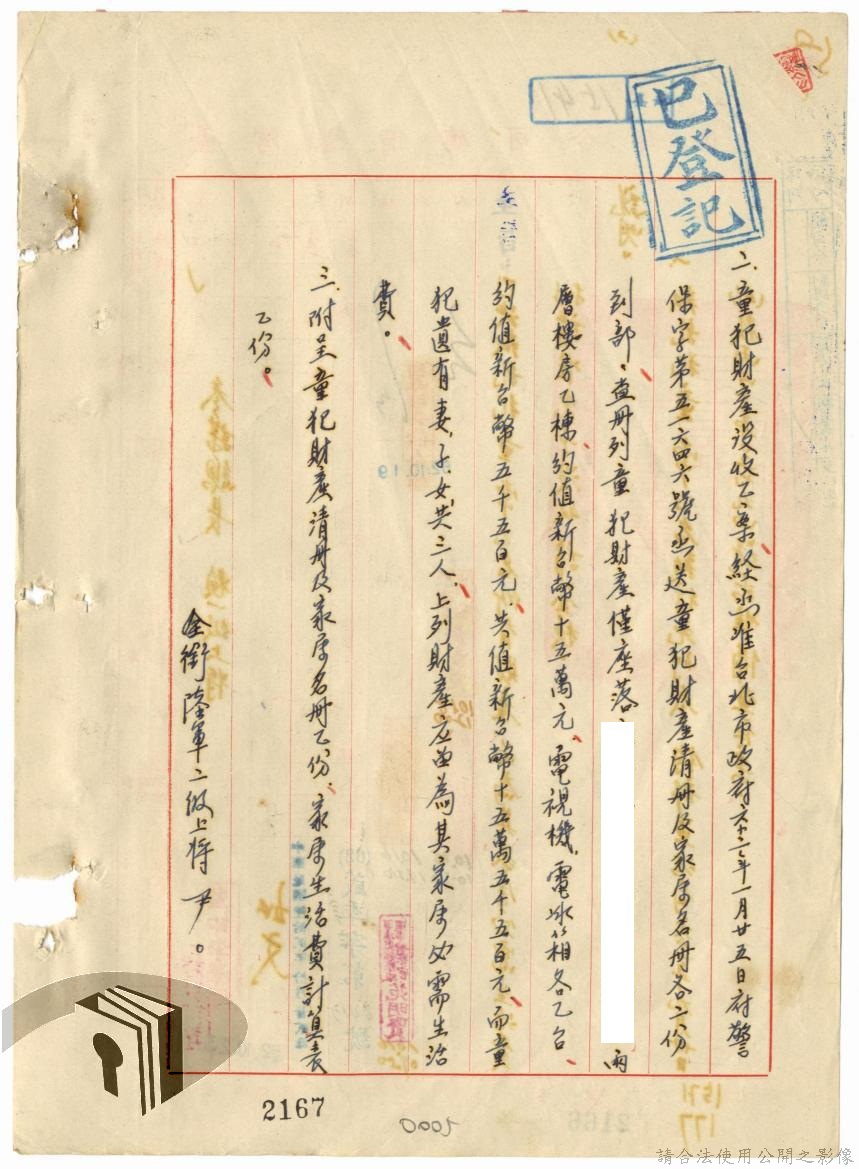 已登記
二、童犯財產沒收乙案,経函准台北市政府六十二年一月廿五日府警
保字第五一六四六號函送童犯財產清册及家屬名册各二份
到部、查册列童犯財產僅座落
兩
層樓房乙棟、約值新台幣十五萬元、電視機、電冰箱各乙台、
約值新台幣五千五百元、共值新台幣十五萬五千五百元、而童
犯遺有妻、子女、共三人、上列財產应留為其家屬必需生活
費。
三、附呈童犯財產清册及家屬名册乙份、家屬生活費計算表
乙份。
全銜陸軍二級上將尹。
2167
請合法使用公開之影像